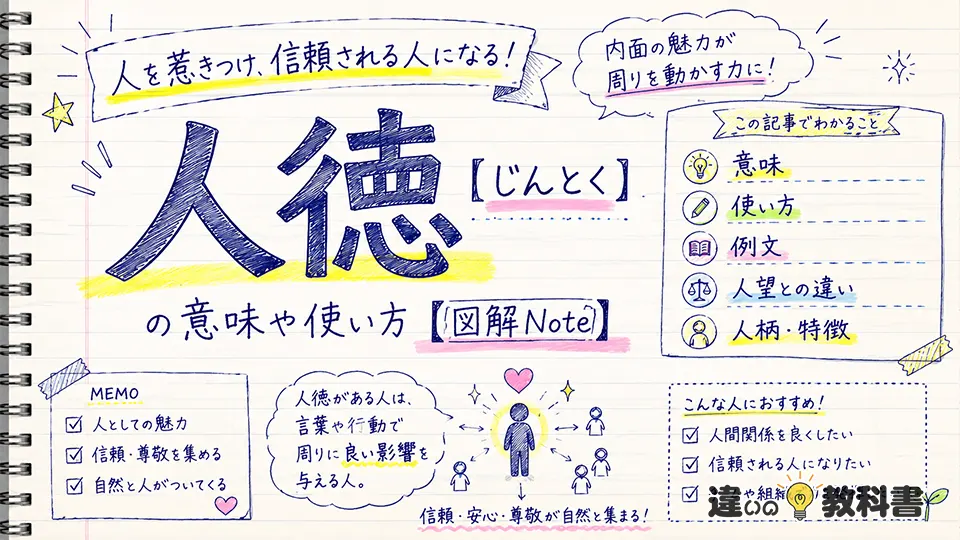 人を惹きつけ、信頼される人になる！
内面の魅力が
周りを動かす力に！
人徳
【じんとく】
の意味や使い方【図解Note】
この記事でわかること
意味
使い方
例文
人望との違い
人柄・特徴
MEMO
人としての魅力
信頼・尊敬を集める
自然と人がついてくる
人徳がある人は、
言葉や行動で
周りに良い影響を
与える人。
信頼・安心・尊敬が自然と集まる！
こんな人におすすめ！
人間関係を良くしたい
信頼される人になりたい
や組織
違いの教科書